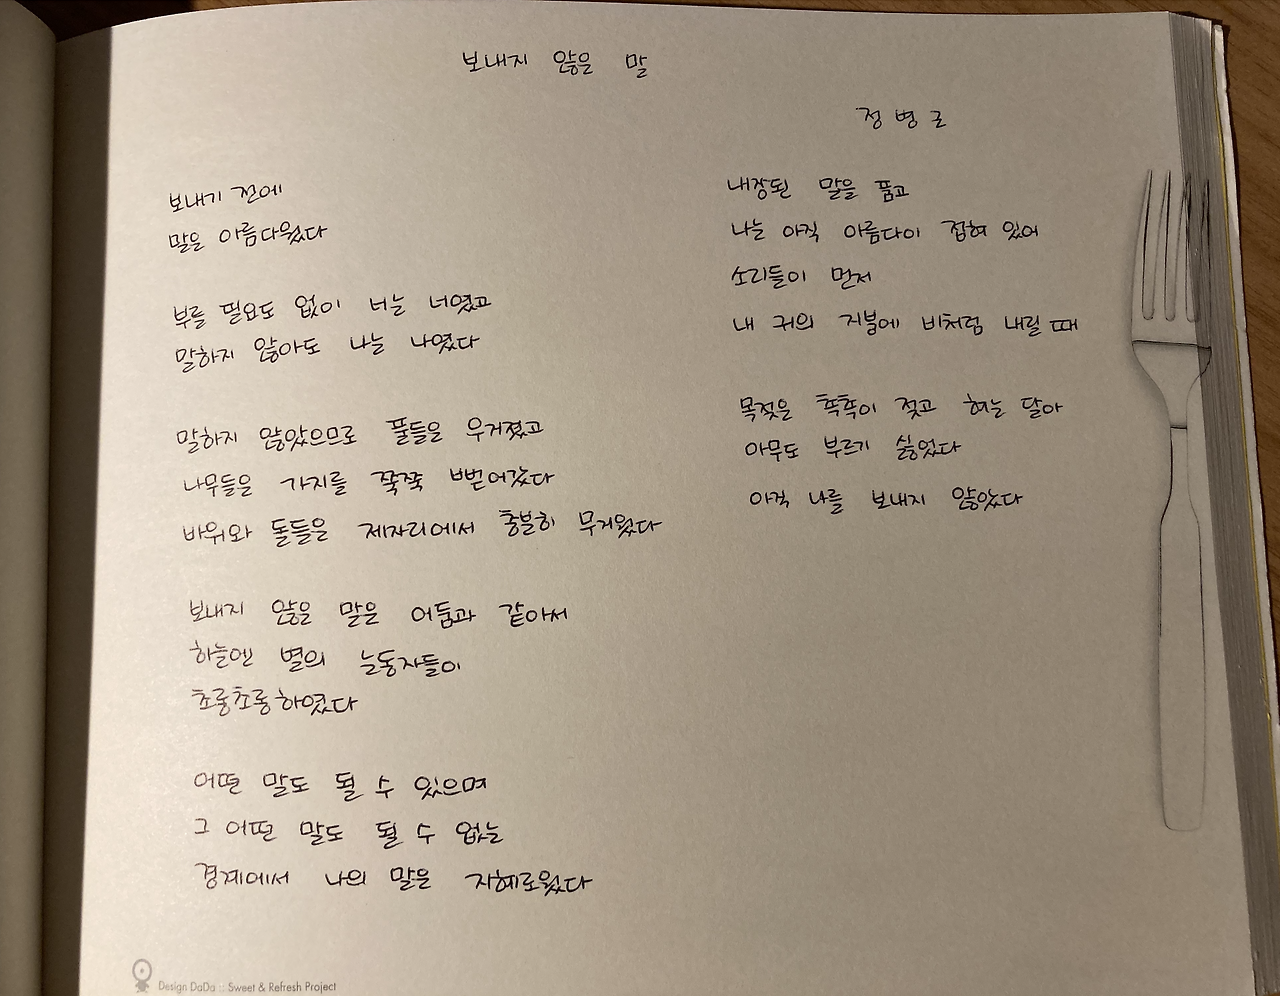 보내지 않은 말
정병근
보내기 전에
말은 아름다웠다
부를 필요도 없이 너는 너였고
말하지 않아도 나는 나였다
말하지 않았으므로 풀들은 우거졌고
나무들은 가지를 쭉쭉 뻗어갔다
바위와 돌들은 제자리에서 충분히 무거웠다
보내지 않은 말은 어둠과 같아서
하늘엔 별의 눈동자들이
초롱초롱하였다
어떤 말도 될 수 있으며
그 어떤 말도 될 수 없는
경계에서 나의 말은 지혜로웠다
내장된 말을 품고
나는 아직 아름다이 접혀 있어
소리들이 먼저
내 귀의 지붕에 비처럼 내릴 때
목젖은 흠뻑이 젖고 혀는 달아
아무도 부르기 싫었다
아직 나를 보내지 않았다
Design DaDa :: Sweet & Refresh Project